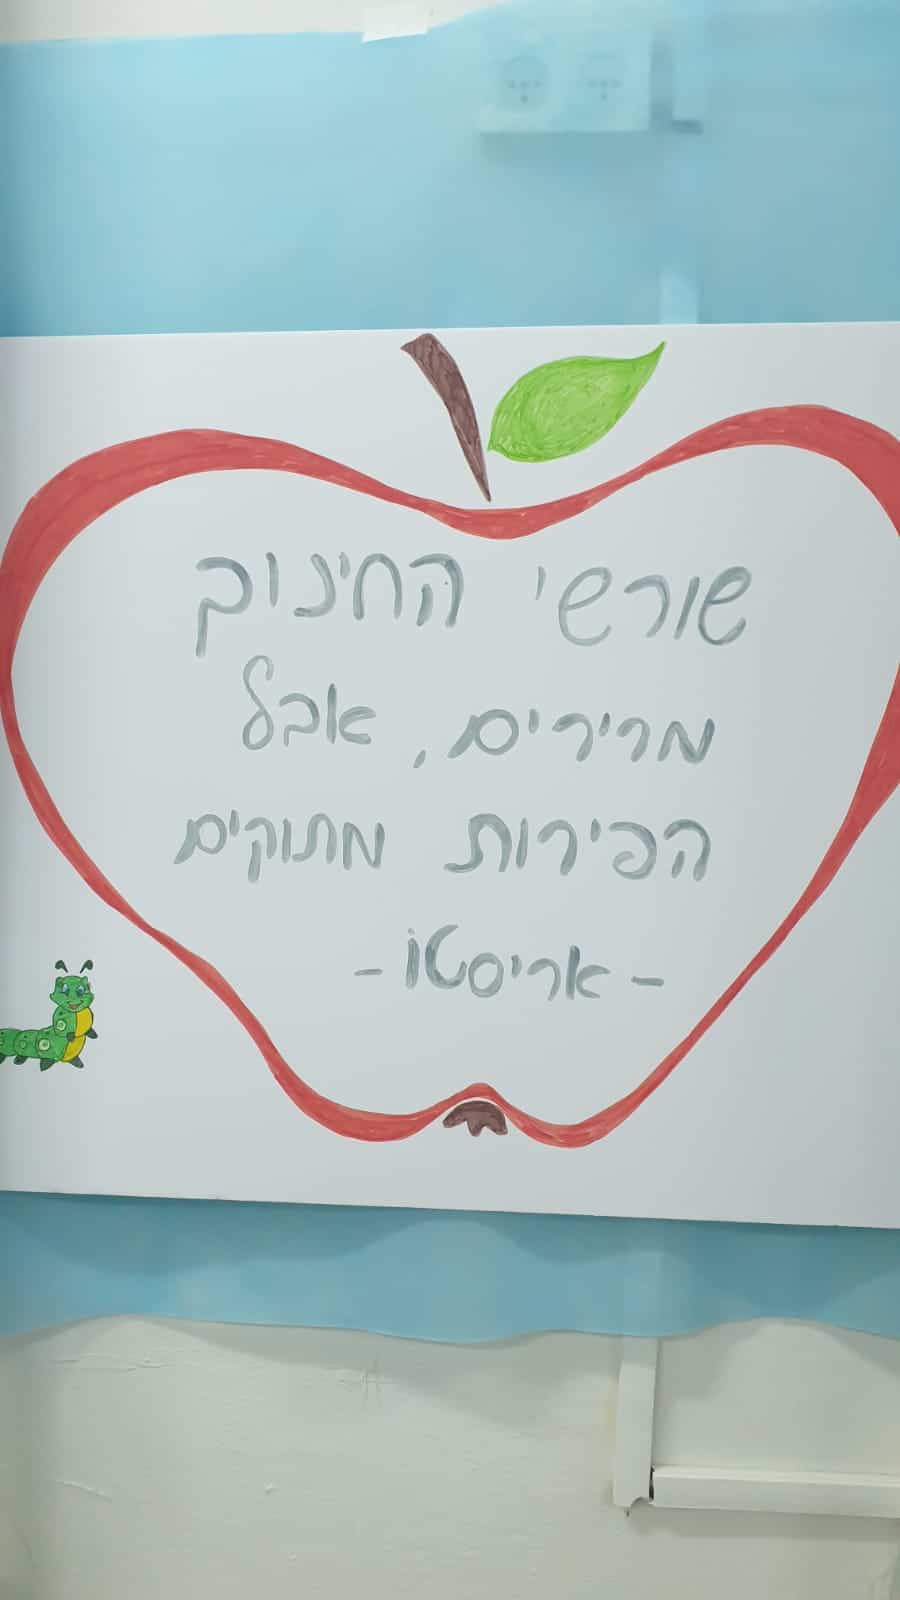 שורשי החינוך
מרירים, אבל
הפירות מתוקים
- אריסטו -